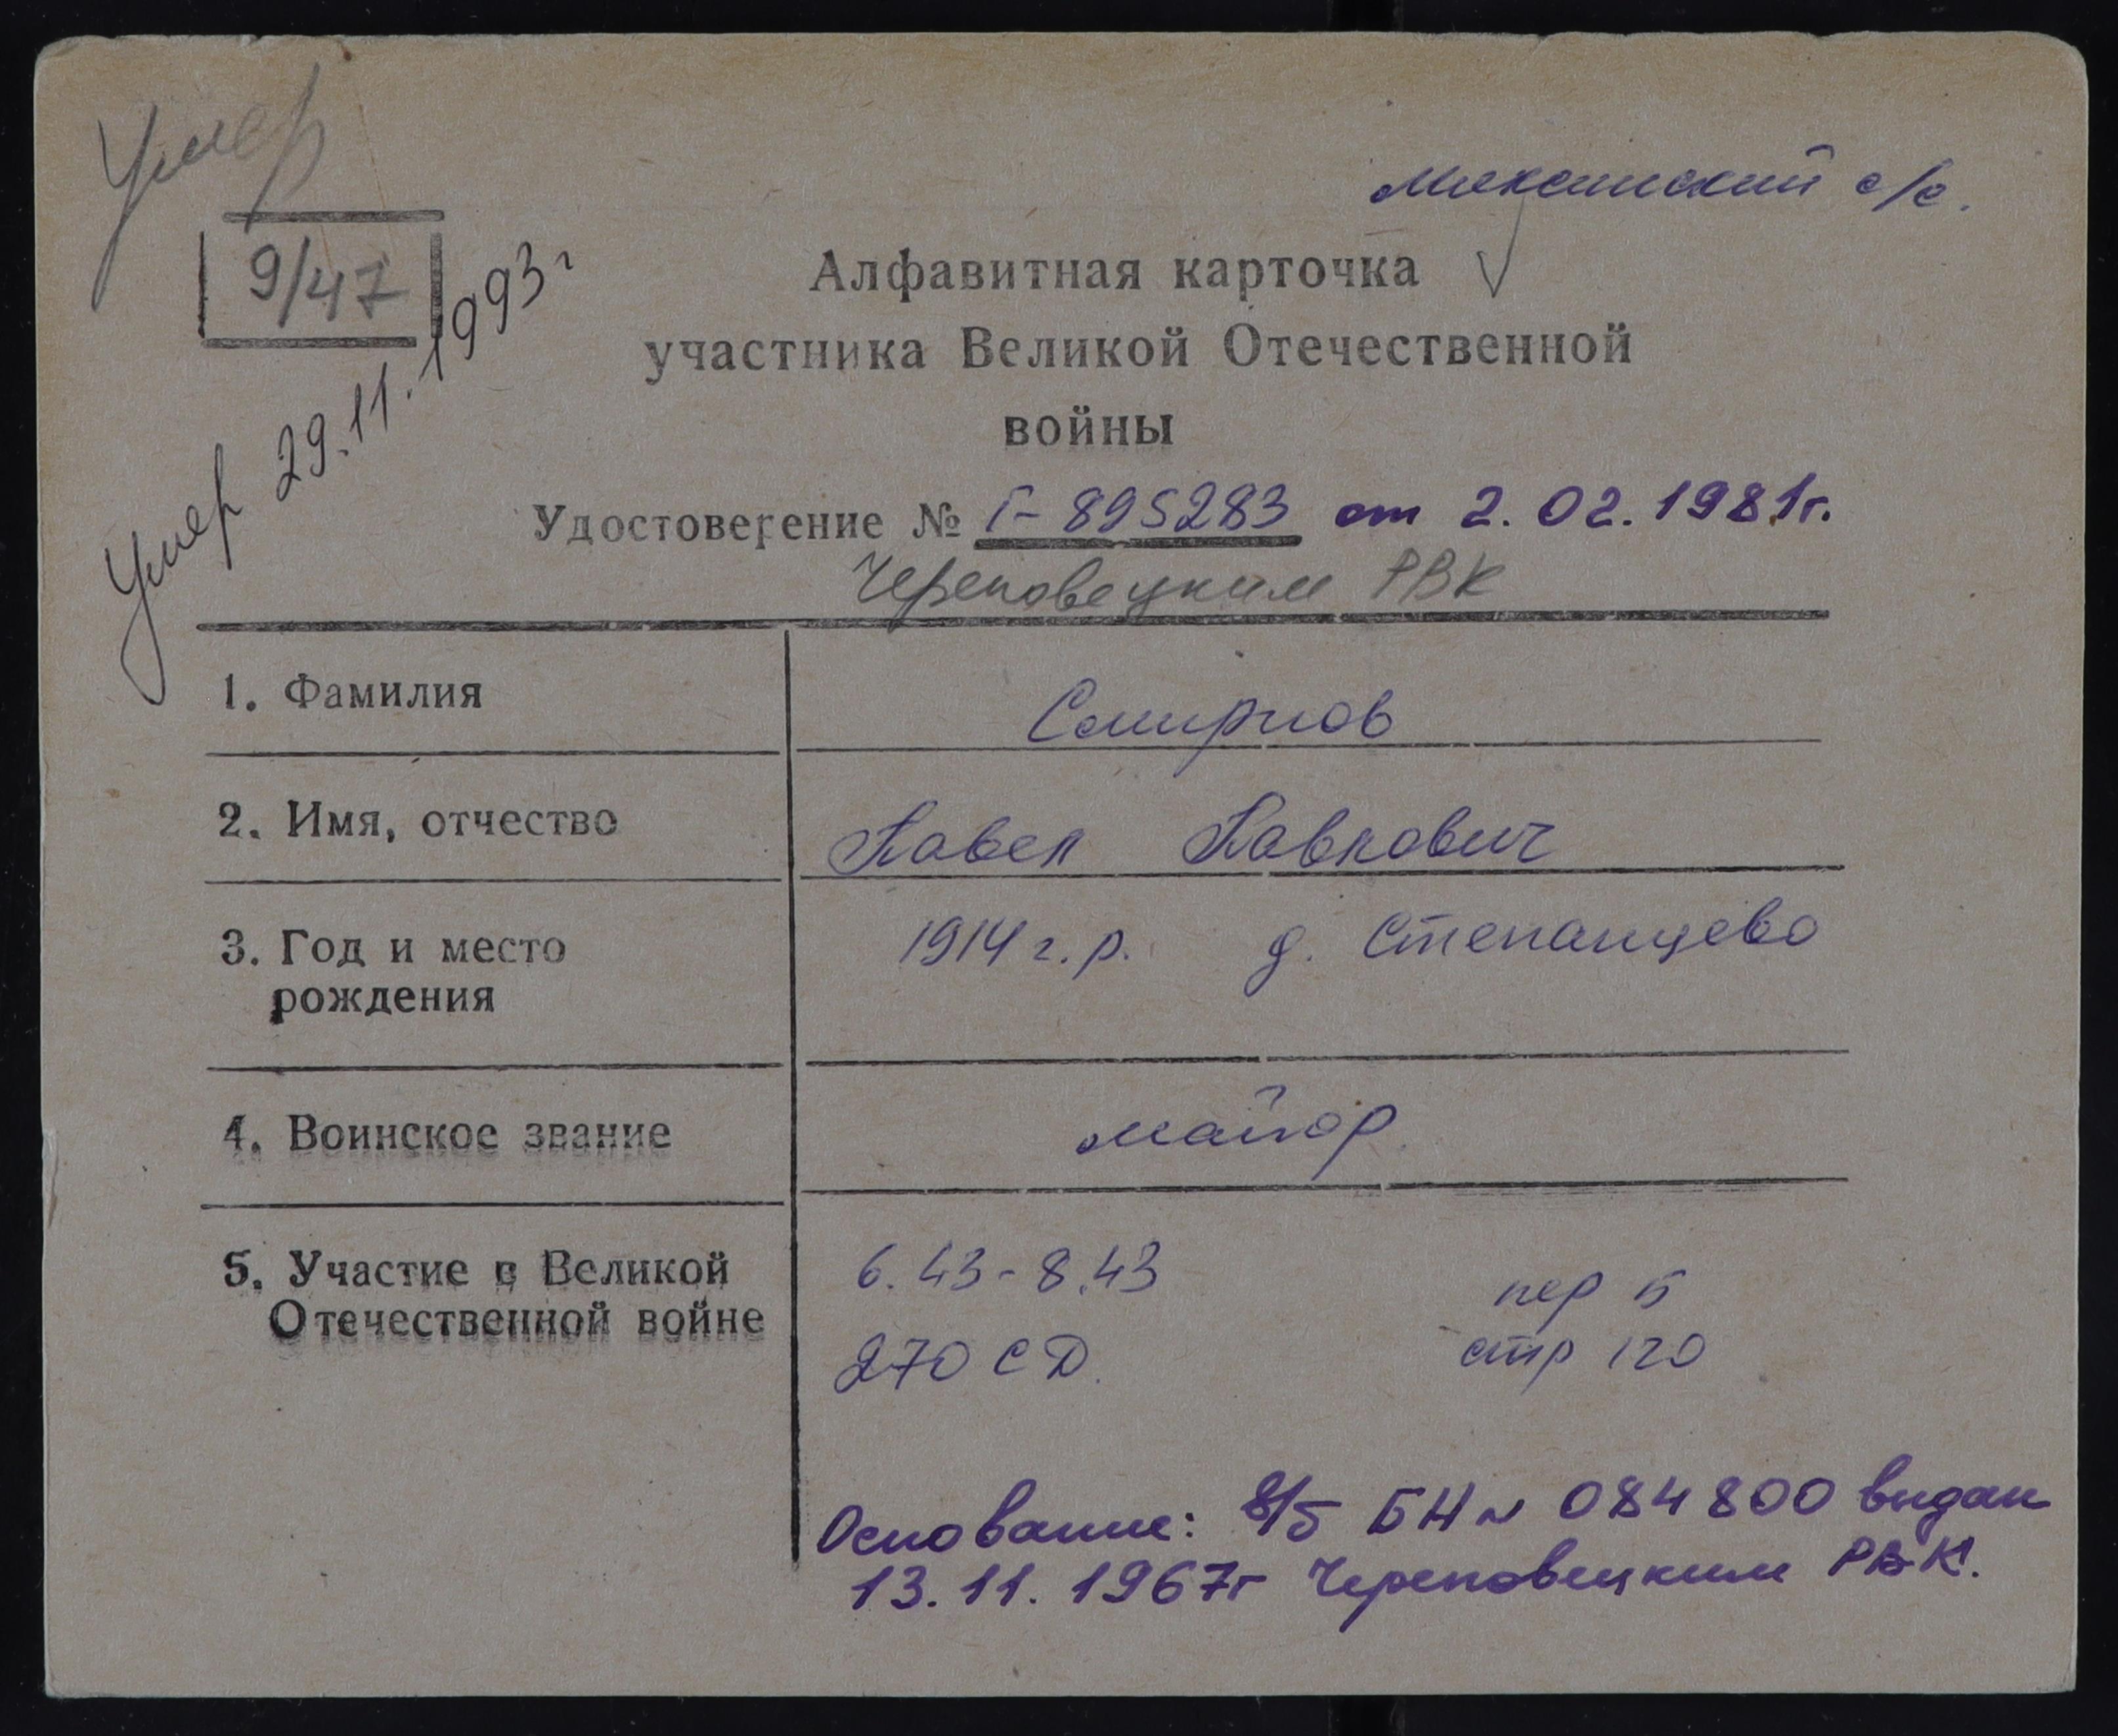 Умер
Мяксинский с/с.
9/47
Умер 29.11.1993г
Алфавитная карточка
участника Великой Отечественной
войны
Удостоверение № Г-895283 от 2.02.1981г.
Череповецким РВК
1. Фамилия Смирнов
2. Имя, отчество Павел Павлович
3. Год и место 1914 г.р. д. Степанцево
рождения
4. Воинское звание майор
5. Участие в Великой 6.43-8.43 пер Б
Отечественной войне 270 СД. стр 120
Основание: в/б БН № 084800 выдан
13.11.1967г Череповецким РВК.